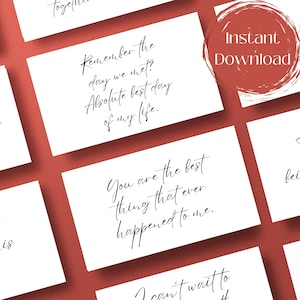 together
Instant
Download
Remember the
day we met?
Absolute best day
of my life.
You are the best
thing that ever
happened to me.
is
I can't wait to